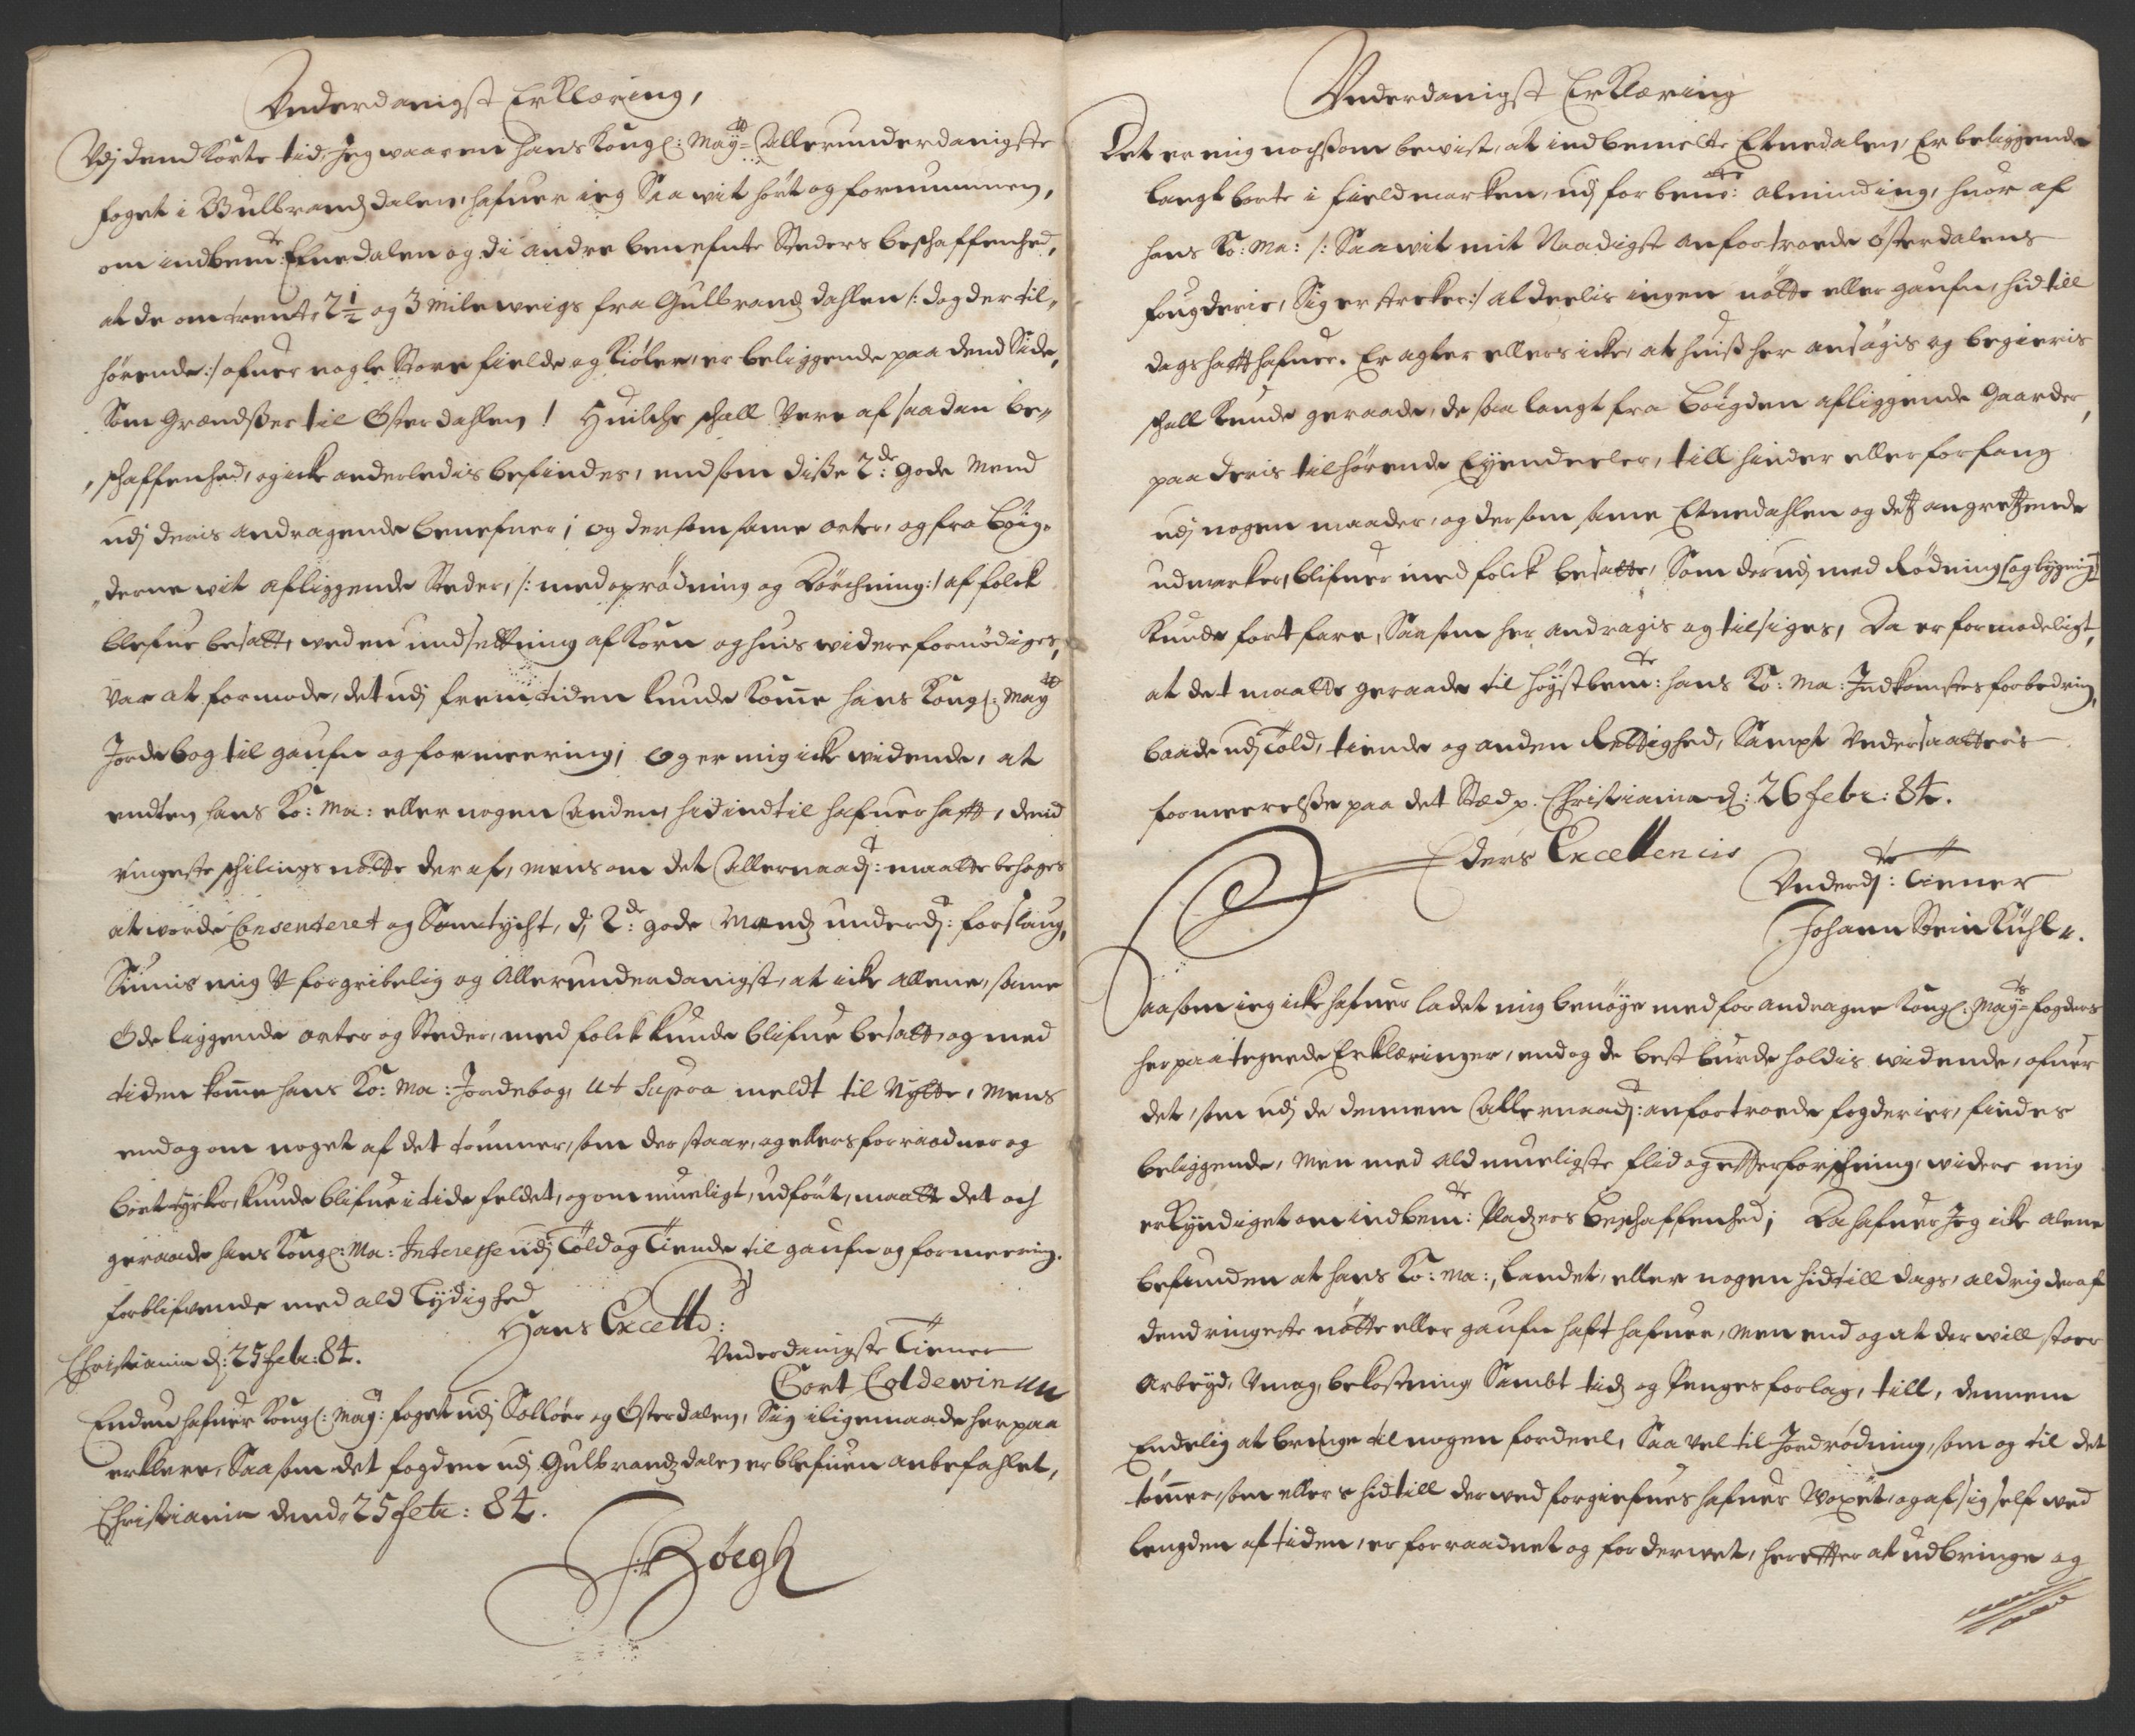 Underdanigst Erklæring,
Udj dend korte tid, Jeg waar en hans Kongl: May:ts Allerunderdanigste
foget i Gulbrandzdalen, hafuer ieg Saa wit hört og fornummen,
om indbem:te Etnedalen og di andre benefnte Steders beschaffenhed,
at de omtrent, 2½ og 3 Mile weigs fra Gulbrandz dahlen /: dog der til,,
hörende :/ ofuer nogle Store fielde og Kiöler, er beliggende paa dend Side,
Som Grændsser til Österdahlen! Huilche schall Vere af saadan be,,
,,schaffenhed, og icke anderledis befindes, end som disse 2:de gode Mend
udj deris andragende benefner; og der som same orter, og fra böig,,
,,derne wit afliggende Steder, /: med oprödning og dörchning :/ af folck
blefue besatt, wed en undsettning af Korn og huis widere fornödiges,
Var at formode, det udj fremtiden kunde komme hans Kongl: May:ts
Jordebog til gaufn og formeering; og er mig icke widende, at
endten hans Ko: Ma: eller nogen Anden, hid indtil hafuer hafft, dend
ringeste schilings nötte der af, mens om det Allernaadj:t maatte behages
at worde Consenteret og Samtycht, dj 2:de gode Mændz underdj:t forslaug,
Siunis mig U-forgribelig og Allerunderdanigst, at icke allene, same
Öde liggende orter og Steder, med folck kunde blifue besatt, og med
tiden komme hans Ko: Ma: Jordebog, ut Supra meldt til Nytte, Mens
end og om noget af det tömmer, som der staar, og ellers forraadner og
bort törkes, kunde blifue i tide feldet, og om mueligt, udfört, maatte det och
geraade hans Kongl: Ma: Interesse udj Told og Tiende til gaufn og formeering.
forblifuende med ald Lydighed
Hans Excell:
Christiania d: 25 febr: 84. Underdanigste Tiener
Cort Coldewin
Enden hafuer Kongl: May: foget udj Solöer og Österdalen, Sig iligemaade her paa
erklere, Saasom det fogden udj Gulbrandzdalen er blefuen anbefahlet,
Christiania dend 25 febr: 84.
Höegh
Underdanigst Erklæring
Det er mig nochsom bewist, at indbemelte Etnedalen, Er beliggende
langt borte i fieldmarken, udj forbem:te alminding, huor af
hans Ko: Ma: /: Saa wit mit Naadigst anfortroede Österdalens
fougderie, Sig erstrecker :/ aldeelis ingen nötte eller gaufn, hid till
dags hafft hafuer. Er agter ellers icke, at huiss her ansögis og begieris
schall kunde geraade, de saa langt fra böigden afliggende Gaarder,
paa deris tilhörende Eyendeeler, till hinder eller forfang
udj nogen maader, og der som same Etnedahlen og detz angretzende
udmarker, blifuer med folck besatte, Som der udj med Rödning [og bygning]
kunde fort fare, Saa som her andragis og tilsiges, Da er formodeligt,
at det maatte geraade til höystbem:te hans Ko: Ma: Indkomstes forbedring,
baade udj Told, tiende og anden Rettighed, Sampt Undersaatters
formeerelsse paa det Sted p. Christiania d: 26 febr: 84.
Eders Excellencis
Underdj:te Tiener
Johann Steinkühl.
Saasom ieg icke hafuer ladet mig benöye med forandragne Kongl: May:ts fogders
her paa tegnede Erklæringer, end og de best burde holdis widende, ofuer
det, som udj de dennem Allernaadj:t anfortroede fogderier, findes
beliggende, Men med ald mueligste flid og effterforschning, widere mig
erkyndiget om indbem:te Pladzers beschaffenhed; Da hafuer Jeg icke alene
befunden at hans Ko: Ma:, Landet, eller nogen hid till dags, aldrig der af
dend ringeste nötte eller gaufn haft hafuer, Men end og at der will stoer
Arbeyd, Umag, bekostning Sambt tidz og Penges forlag, till, dennem
Endelig at bringe til nogen fordeel, Saa vel til Jordrödning, som og til det
tömmer, som ellers hid till der wed forgiefues hafuer woxet, og af sig self wed
lengden af tiden, er forraadnet og forderwet, hereffter at udbringe og